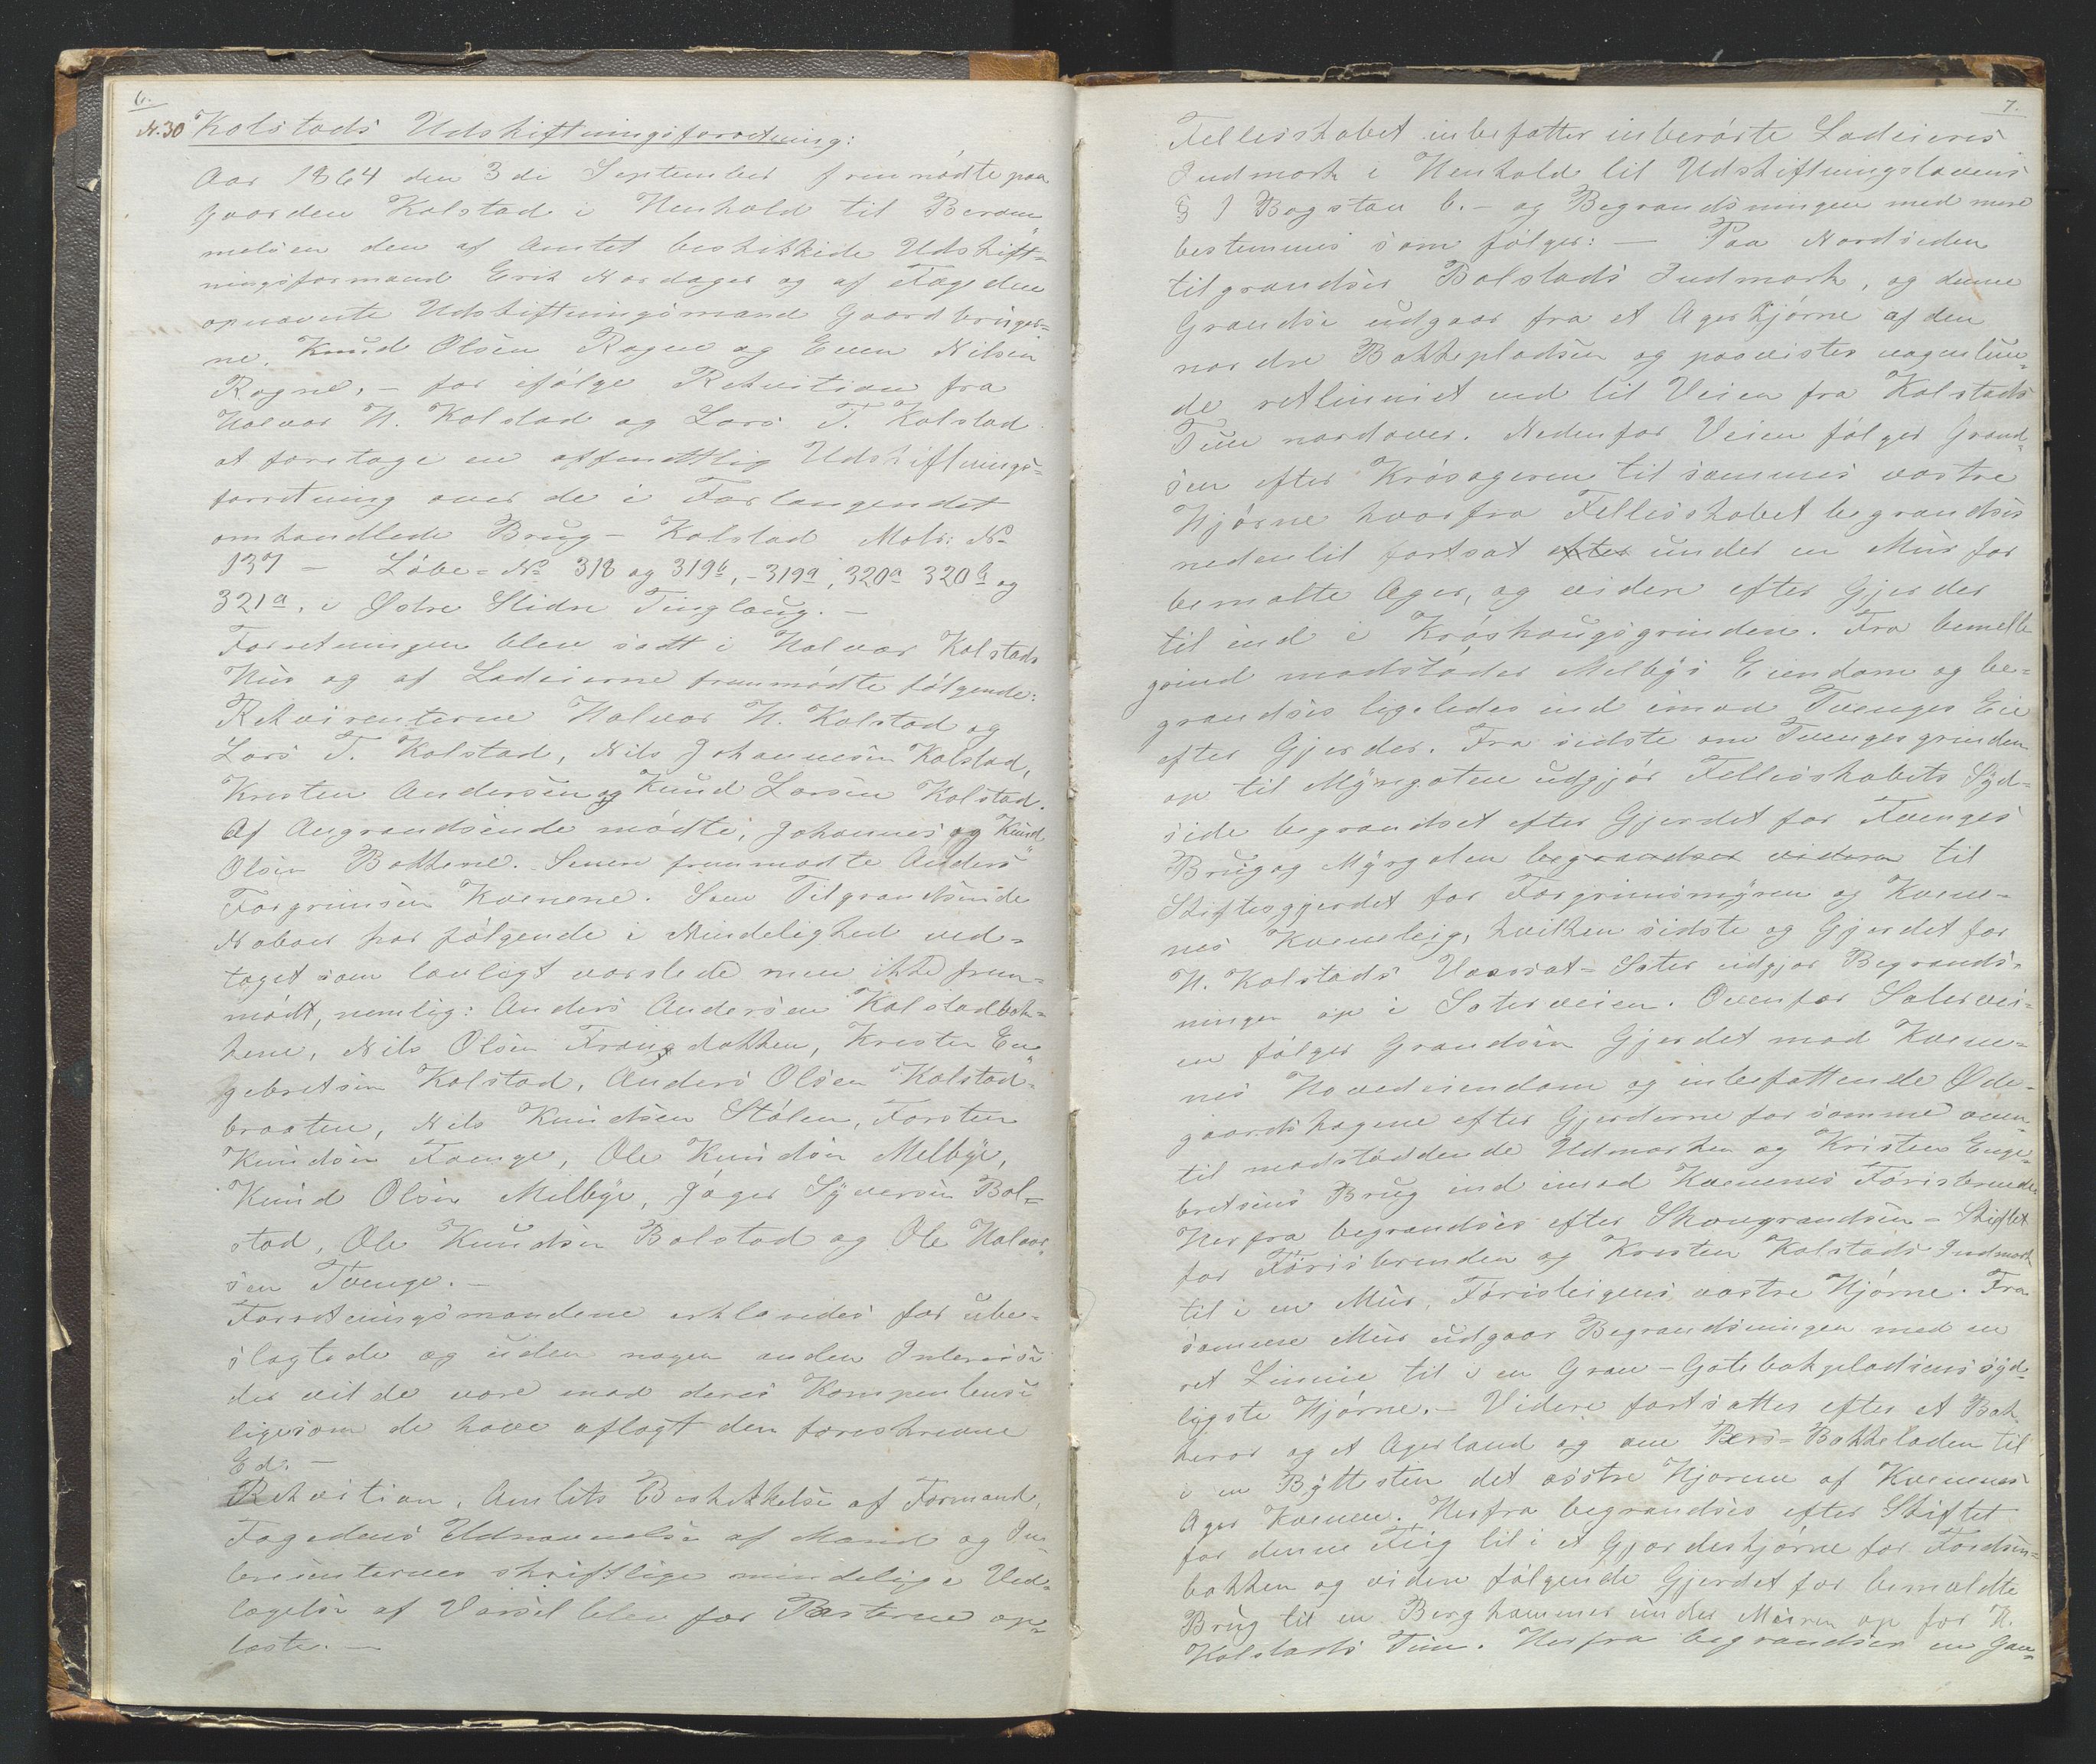 6.
N.30 Kolstads Udskiftningsforretning:
Aar 1864 den 3de September fremmødte paa
Gaarden Kolstad i Henhold til Beram¬
melsen den af Amtet beskikkede Udskift¬
ningsformand Erik Nordager og af Fogeden
opnævnte Udskiftningsmænd Gaardbruger¬
ne, Knud Olsen Rogne og Even Nilsen
Rogne, - for ifølge Rekvition fra
Halvor H. Kolstad og Lars T. Kolstad
at foretage en offenttlig Udskiftnings¬
forretning over de i Forlangendet
omhandlede Brug - Kolstad Matr: No
137 - Løbe-No 318 og 319b, - 319a, 320a 320b og
321a, i Østre Slidre Tinglaug. -
Forretningen blev sadt i Halvor Kolstads
Hus og af Lodeierne fremmødte følgende:
Rekvirenterne Halvor H. Kolstad og
Lars T. Kolstad, Nils Johannesen Kolstad,
Kresten Andersen og Knud Larsen Kolstad.
Af Angrændsende mødte, Johannes og Knud
Olsen Bakkene. Senere fremmødte Anders
Torgrimsen Kvenene. Som Tilgrændsende
Naboer har følgende i Mindelighed ved¬
taget som lovligt varslede men ikke frem¬
mødt, nemlig: Anders Andersen Kolstadbak¬
kene, Nils Olsen Trangdokken, Kresten En¬
gebretsen Kolstad, Anders Olsen Kolstad¬
braaten, Nils Knudsen Stølen, Torsten
Knudsen Tvenge, Ole Knudsen Melbye,
Knud Olsen Melbye, Jøger Syversen Bol¬
stad, Ole Knudsen Bolstad og Ole Halvor¬
sen Tvenge. -
Forretningsmændene erklærides for ube¬
slægtede og uden nogen anden Interesse
der vilde være mod deres Kompentense
ligesom de have aflagt den foreskrevne
Ed. -
Rekvition, Amtets Beskikkelse af Formand,
Fogedens Udnævnelse af Mænd og In¬
teresenternes skriftlige mindelige Ved¬
tagelse af Varsel blev for Parterne op¬
læste. -
7.
Fellesskabet inbefatter inberørte Lodeieres
Indmark i Henhold til Udskiftningslovens
§ 1 Bogstav b. - og Begrændsningen med mere
bestemmes som følger: - Paa Nordsiden
tilgrændser Bolstads Indmark, og denne
Grændse udgaar fra et Agerhjørne af den
nordre Bakkepladsen og paavistes
de retlinniet ned til Veien fra Kolstads
Tun nordover. Nedenfor Veien følger Grænd¬
sen efter Krøsageren til sammes vestre
Hjørne hvorfra Fellesskabet begrændses
nedentil fortsat efter under en Mur for
bemalte Ager, og videre efter Gjerder
til ind i Krøshaugsgrinden. Fra bemelte
grind modstøder Melbys Eiendom og be¬
grændses ligeledes ind imod Tvenges Eie
efter Gjerder. Fra sidste om Tvengesgrinden
op til Myrgaten udgjør Fellesskabets Syd¬
side begrændset efter Gjerdet for Tvenges
Brug og Myrgaten begrændses videre til
Skiftesgjerdet for Torgrimsmyren og Kvene¬
nes Kveneleig, hvilken sidste og Gjerdet for
H. Kolstads Vaarsat-Sæter udgjør Begrænds¬
ningen op i Sæterveien. Ovenfor Sætervei¬
en følger Grændsen Gjerdet mod Kvene¬
nes Hovedeiendom og inbefattende Øde¬
gaardshagene efter Gjerderne for samme oven¬
til modstødende Udmarken og Kristen Enge¬
bretsens Brug ind imod Kvenenes Førisbrenden
Herfra begrændses efter Skovgrændsen - Skiftet
for Førisbrenden og Kresten Kolstads Indmark
til i en Mur, Førisleigens vestre Hjørne. Fra
samme Mur udgaar Begrændsningen med en
ret Linnie til i en Gran - Gotebakpladsens syd¬
ligste Hjørne. - Videre fortsættes efter et Bak
kerør og et Agerland og om Pers-Bakkeladen til
i en Byttesten det østre Hjørne af Kvenenes
Ager Kvenen. Herfra begrændses efter Skiftet
for denne Teig til i et Gjerdeshjørne for Tordsen¬
bakken og videre følgende Gjerdet for bemældte
Brug til en Berghammer under Muren op for H.
Kolstads Tun. Herfra begrændser en Gam¬